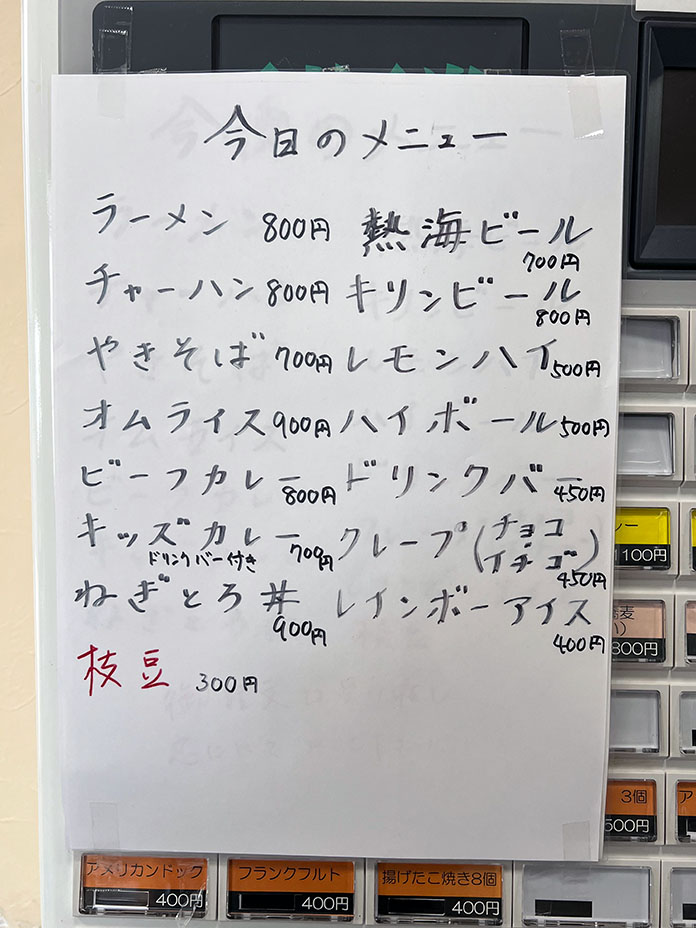 今日のメニュー
ラーメン 800円
チャーハン 800円
やきそば 700円
オムライス 900円
ビーフカレー 800円
キッズカレー 700円
ドリンクバー付き
ねぎとろ丼 900円
枝豆 300円
熱海ビール 700円
キリンビール 800円
レモンハイ 500円
ハイボール 500円
ドリンクバー 450円
クレープ(チョコ
イチゴ) 450円
レインボーアイス 400円
レー
1100円
800円
3個
500円
ア
アメリカンドック
400円
フランクフルト
400円
揚げたこ焼き8個
400円